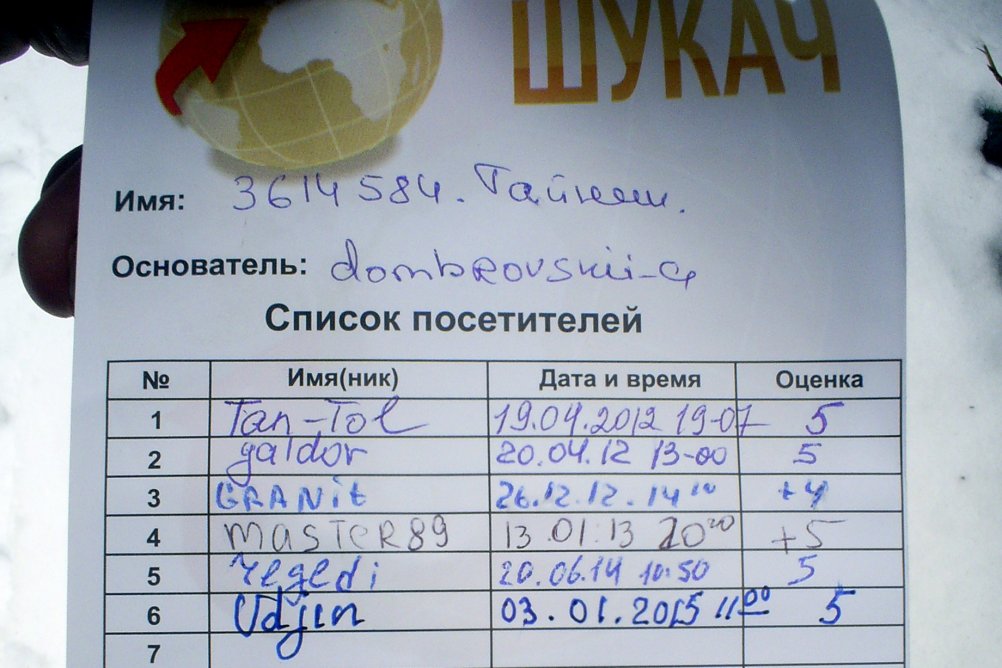 ШУКАЧ
Имя: 3614584. Тайник.
Основатель: dombrovskii-a
Список посетителей
№ Имя(ник) Дата и время Оценка
1 Tan-Tol 19.04.2012 19-07 5
2 galdor 20.04.12 13-00 5
3 GRANit 26.12.12. 14 +4
4 masTeR89 13.01.13 20 +5
5 20.06.14 10:50 5
6 Udjin 03.01.2015 11 00 5
7